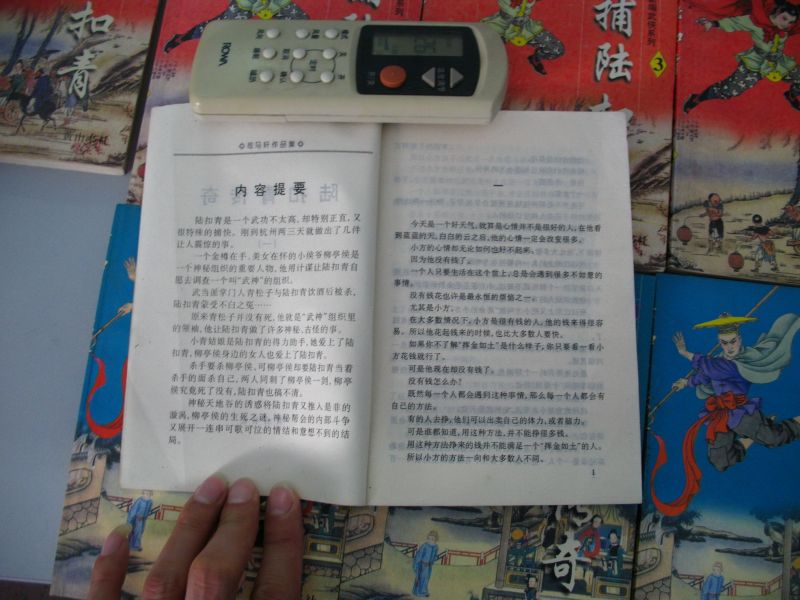 扣青
捕陆
武侠系列
3
RONX
司马轩作品集
内容提要
陆扣青是一个武功不太高,却特别正直,又
很特殊的捕快。刚到杭州两三天就做出了几件
让人震惊的事。
一个金樽在手,美女在怀的小侯爷柳亭侯是
一个神秘组织的重要人物,他用计谋让陆扣青自
愿去调查一个叫“武神”的组织。
武当派掌门人青松子与陆扣青饮酒后被杀,
陆扣青蒙受不白之冤……
原来青松子并没有死,他就是“武神”组织里
的领袖,他让陆扣青做了许多神秘、古怪的事。
小青姑娘是陆扣青的得力助手,她爱上了陆
扣青,柳亭侯身边的女人也爱上了陆扣青。
杀手要杀柳亭侯,可柳亭侯却要陆扣青当着
杀手的面杀自己,两人同刺了柳亭侯一剑,柳亭
侯究竟死了没有,陆扣青也搞不清。
神秘天地谷的诱惑将陆扣青又推入是非的
漩涡,柳亭侯的生死之谜,神秘帮会的内部斗争
又展开一连串可歌可泣的情结和意想不到的结
局。
一
今天是一个好天气,就算是心情并不是很好的人,在他看
到蓝蓝的天,白白的云之后,他的心情一定会改变很多。
小方的心情却无论如何也好不起来。
因为他没有钱了。
一个人只要生活在这个世上,总是会遇到很多不如意的
事情。
没有钱花也许是最永恒的烦恼之一。
尤其是小方。
在大多数情况下,小方是很有钱的人,他的钱来得很容
易。所以他花起钱来的时候,也比大多数人要快。
如果你不了解“挥金如土”是什么样子,你只要看一看小
方花钱就行了。
可是他现在却没有钱了。
没有钱怎么办?
既然每一个人都会遇到这种事情,那么每一个人都会有
自己的方法。
有的人去挣,他们可以出卖自己的体力,或者脑力。
可是谁都知道,用这种方法,并不能挣很多钱。
用这种方法挣来的钱并不能满足一个“挥金如土”的人。
所以小方的方法一向和大多数人不同。
1
传奇